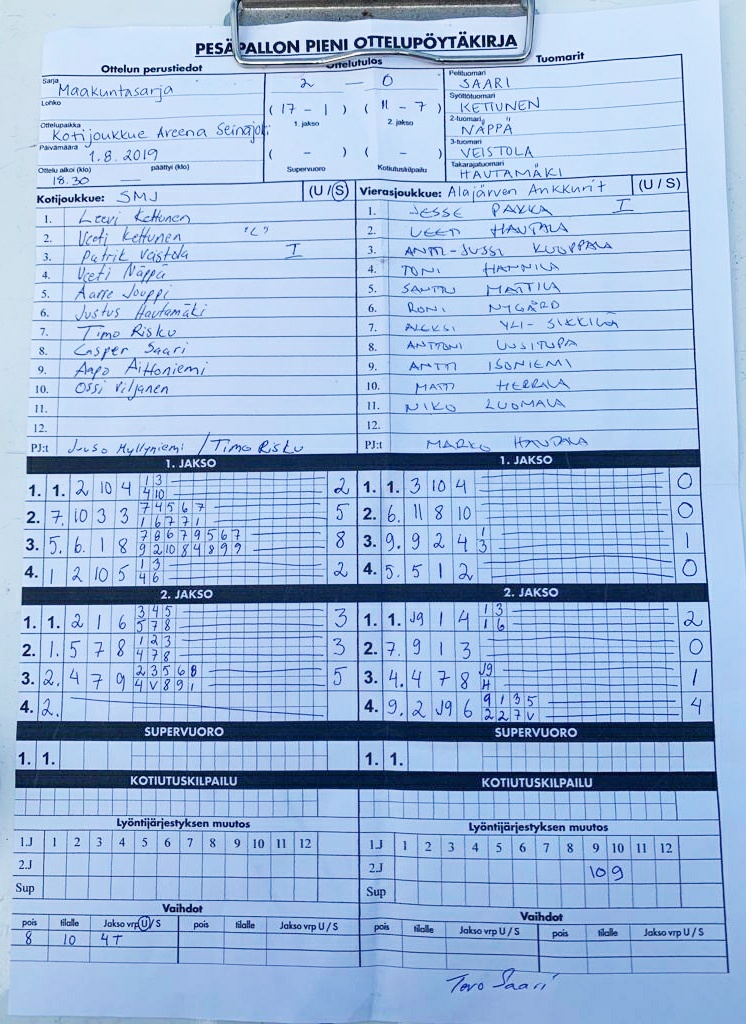 PESÄPALLON PIENI OTTELUPÖYTÄKIRJA
Ottelun perustiedot
Sarja
Maakuntasarja
Lohko
Ottelupaikka
Kotijoukkue Areena Seinäjoki
Päivämäärä
1.8.2019
Ottelu alkoi (klo) päättyi (klo)
18.30 —
Ottelutulos
2 — 0
( 17 - 1 ) ( 11 - 7 )
1. jakso 2. jakso
( - ) ( - )
Supervuoro Kotiutuskilpailu
Tuomarit
Pelituomari
SAARI
Syöttötuomari
KETTUNEN
2-tuomari
NÄPPÄ
3-tuomari
VEISTOLA
Takarajatuomari
HAUTAMÄKI
Kotijoukkue: SMJ (U/S)
1. Leevi Kettunen
2. Veeti Kettunen "C"
3. Patrik Veistola I
4. Veeti Näppä
5. Aarre Jouppi
6. Justus Hautamäki
7. Timo Risku
8. Casper Saari
9. Aapo Aittoniemi
10. Ossi Viljanen
11.
12.
PJ:t Juuso Myllyniemi / Timo Risku
Vierasjoukkue: Alajärven Ankkurit (U/S)
1. JESSE PAKKA I
2. VEETI HAUTALA
3. ANTTI-JUSSI KUOPPALA
4. TONI HANNILA
5. SANTTU MATTILA
6. RONI NYGÅRD
7. ALEKSI YLI-SIKKILÄ
8. ANTTONI UUSITUPA
9. ANTTI ISONIEMI
10. MATTI HERRALA
11. NIKO LUOMALA
12.
PJ:t MARKO HAUTALA
1. JAKSO
1. 1. 2 10 4 1 3 2
4 10
2. 7. 10 3 3 7 4 5 6 7 5
1 6 7 7 1
3. 5. 6. 1 8 7 8 6 7 9 5 6 7 8
9 2 10 8 4 8 9 9
4. 1 2 10 5 1 3 2
4 6
1. JAKSO
1. 1. 3 10 4 0
2. 6. 11 8 10 0
3. 9. 9 2 4 1 1
3
4. 5. 5 1 2 0
2. JAKSO
1. 1. 2 1 6 3 4 5 3
5 7 8
2. 1. 5 7 8 1 2 3 3
4 7 8
3. 2. 4 7 9 2 3 5 6 8 5
4 V 8 9 1
4. 2.
2. JAKSO
1. 1. J9 1 4 1 3 2
1 6
2. 7. 9 1 3 0
3. 4. 4 7 8 J9 1
H
4. 9. 2 J9 6 9 1 3 5 4
2 2 7 V
SUPERVUORO
1. 1.
SUPERVUORO
1. 1.
KOTIUTUSKILPAILU
KOTIUTUSKILPAILU
Lyöntijärjestyksen muutos
1.J 1 2 3 4 5 6 7 8 9 10 11 12
2.J
Sup
Lyöntijärjestyksen muutos
1.J 1 2 3 4 5 6 7 8 9 10 11 12
2.J 10 9
Sup
Vaihdot
pois tilalle Jakso vrp U/S pois tilalle Jakso vrp U/S
8 10 4T
Vaihdot
pois tilalle Jakso vrp U/S pois tilalle Jakso vrp U/S
Tero Saari